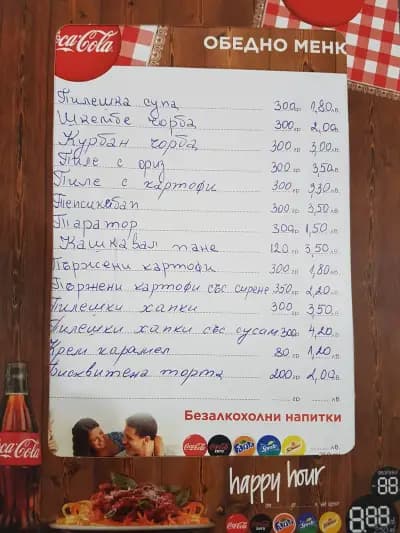 Coca-Cola
ОБЕДНО МЕНЮ
Пилешка супа 300гр 1,80лв.
Шкембе чорба 300гр 2,00лв.
Курбан чорба 300гр 3,00лв.
Пиле с ориз 300гр 3,50лв.
Пиле с картофи 300гр 3,30лв.
Тепсикебап 300гр 3,50лв.
Таратор 300гр 1,50лв.
Кашкавал пане 120гр 3,50лв.
Пържени картофи 300гр 1,80лв.
Пържени картофи със сирене 350гр 2,20лв.
Пилешки хапки 300 3,50лв.
Пилешки хапки със сусам 300гр 4,20лв.
Крем карамел 80гр 1,20лв.
Бисквитена торта 200гр 2,00лв.
гр лв.
Безалкохолни напитки
Coca-Cola
Coca-Cola zero Fanta Sprite лв.
happy hour
-88
888